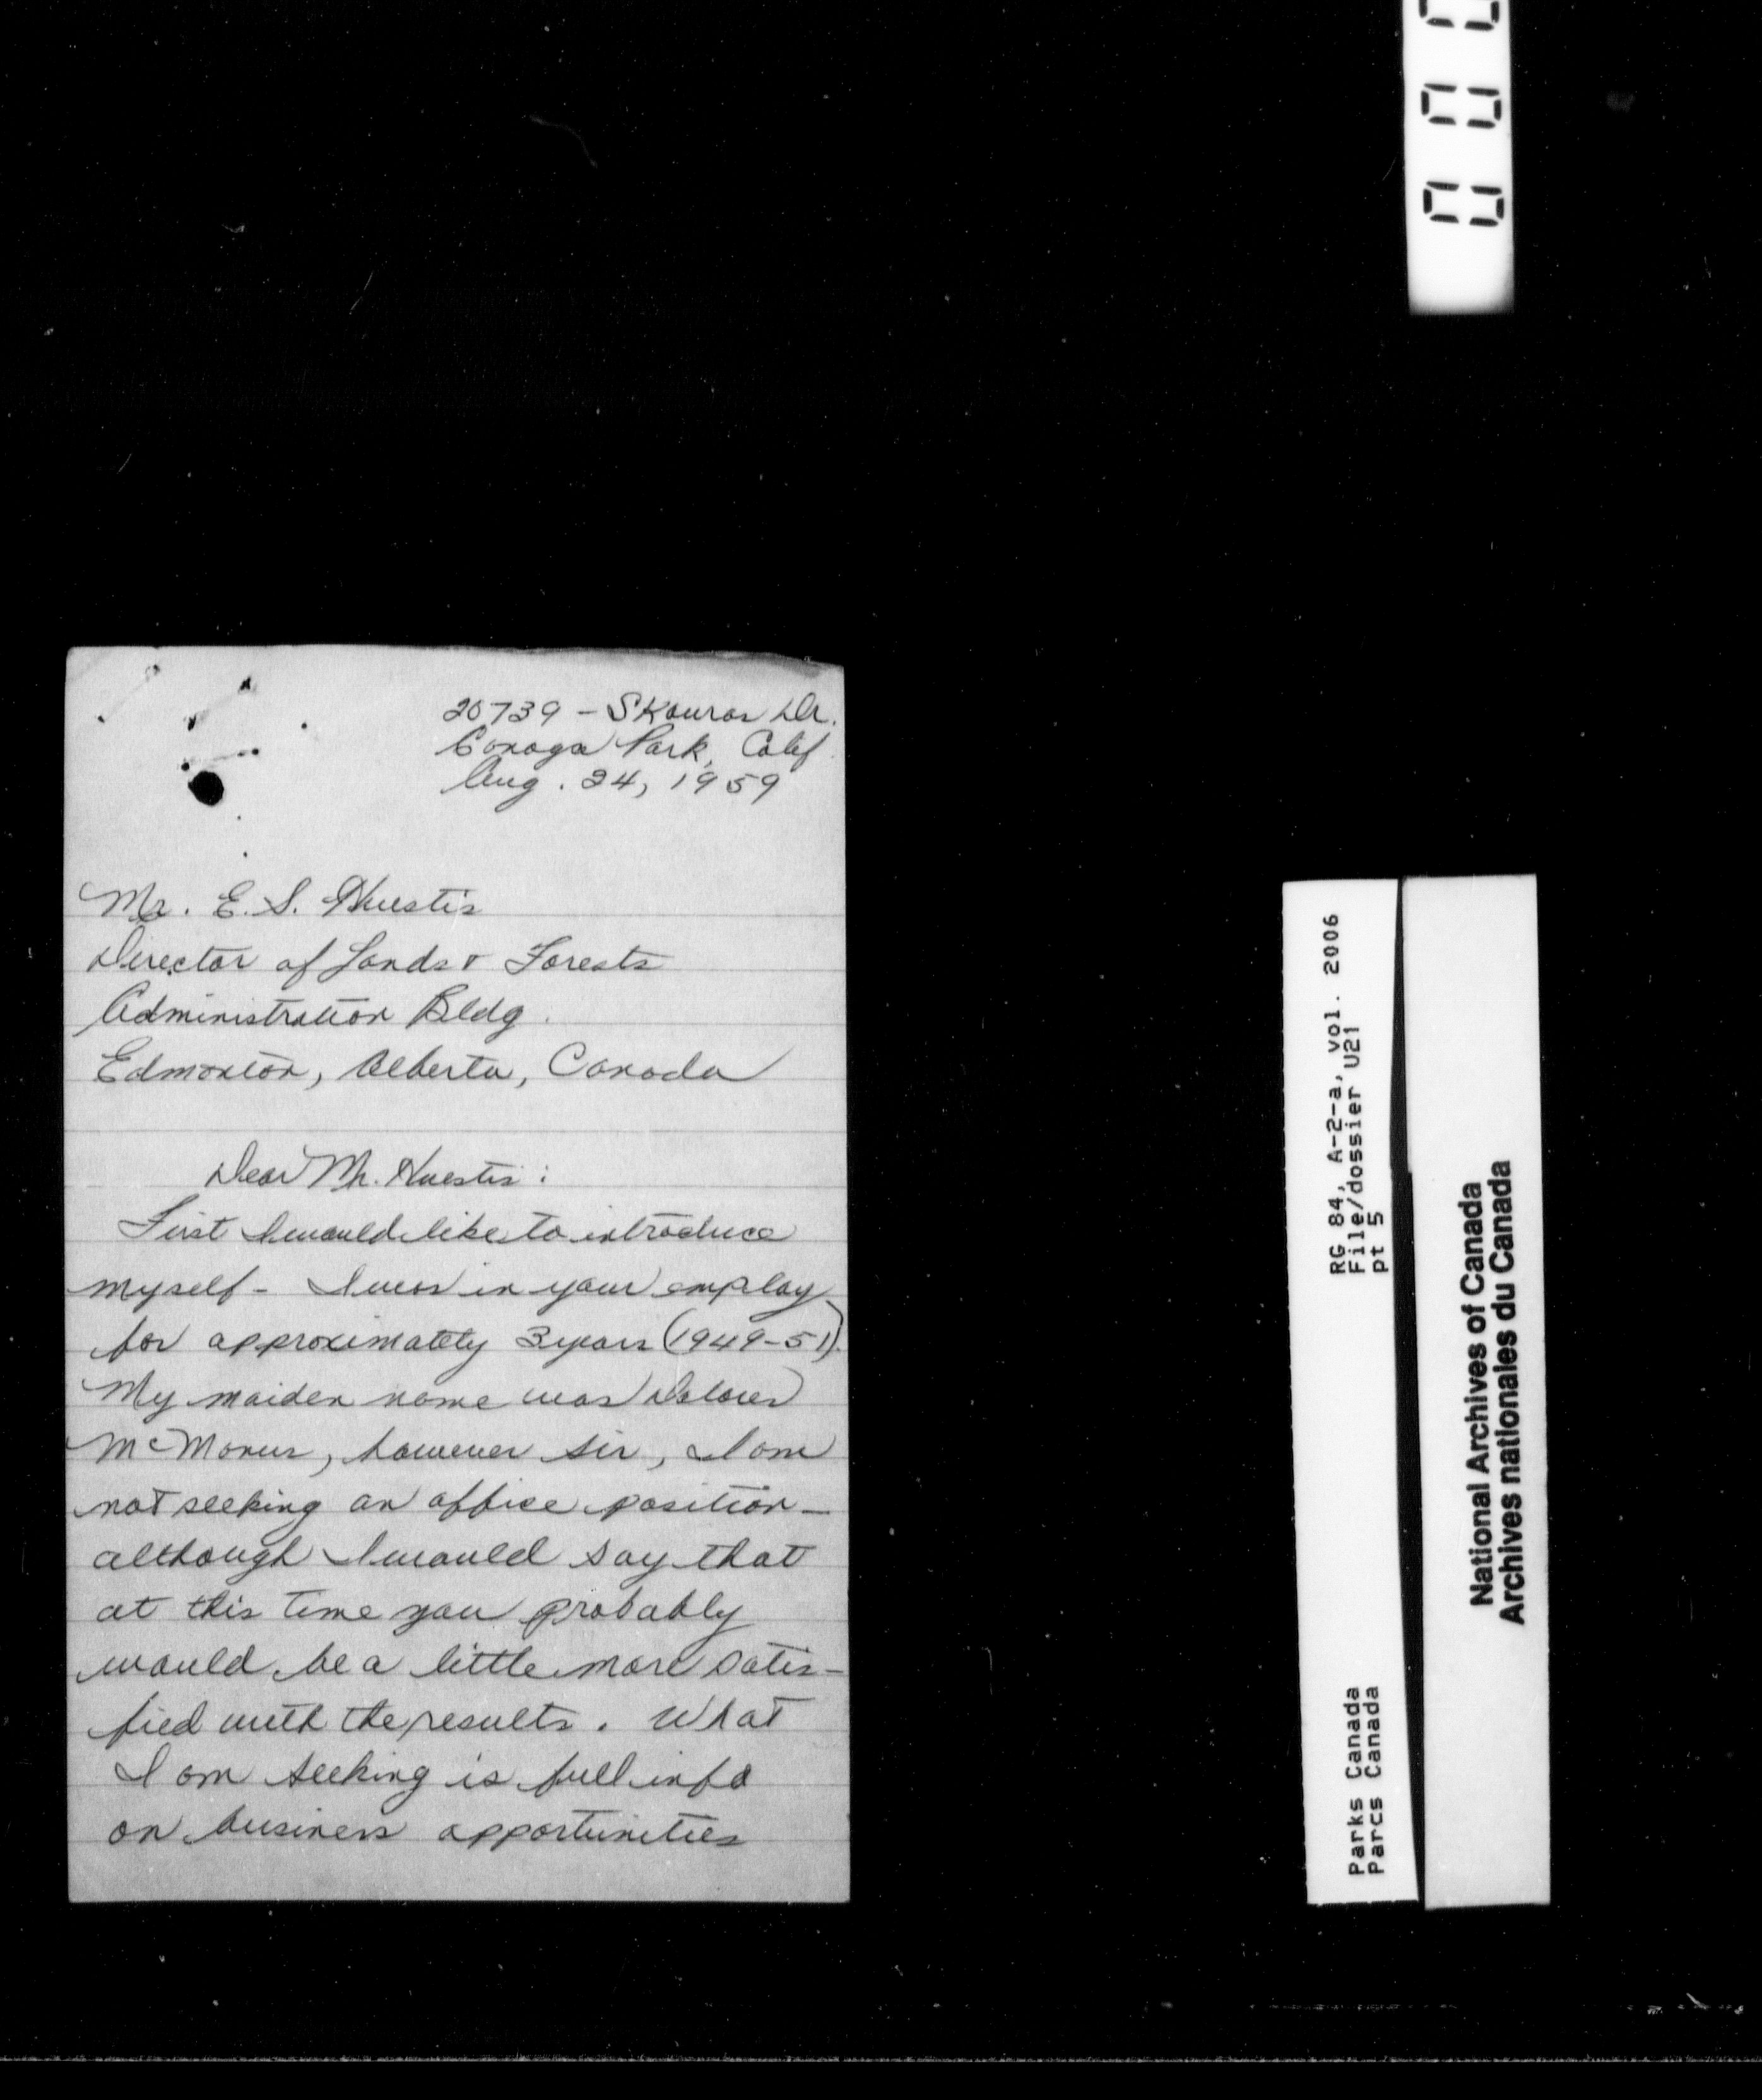 20739 - Skouras Dr.
Canoga Park, Calif
Aug. 24, 1959
Mr. E. S. Huestis
Director of Lands & Forests
Administration Bldg.
Edmonton, Alberta, Canada
Dear Mr. Huestis:
First I would like to introduce
myself - I was in your employ
for approximately 3 years (1949-51).
My maiden name was Dolores
McManus, however sir, I am
not seeking an office position -
although I would say that
at this time you probably
would be a little more satis-
fied with the results. What
I am seeking is full info
on business opportunities
RG 84, A-2-a, vol. 2006
File/dossier U21
pt 5
Parks Canada
Parcs Canada
National Archives of Canada
Archives nationales du Canada